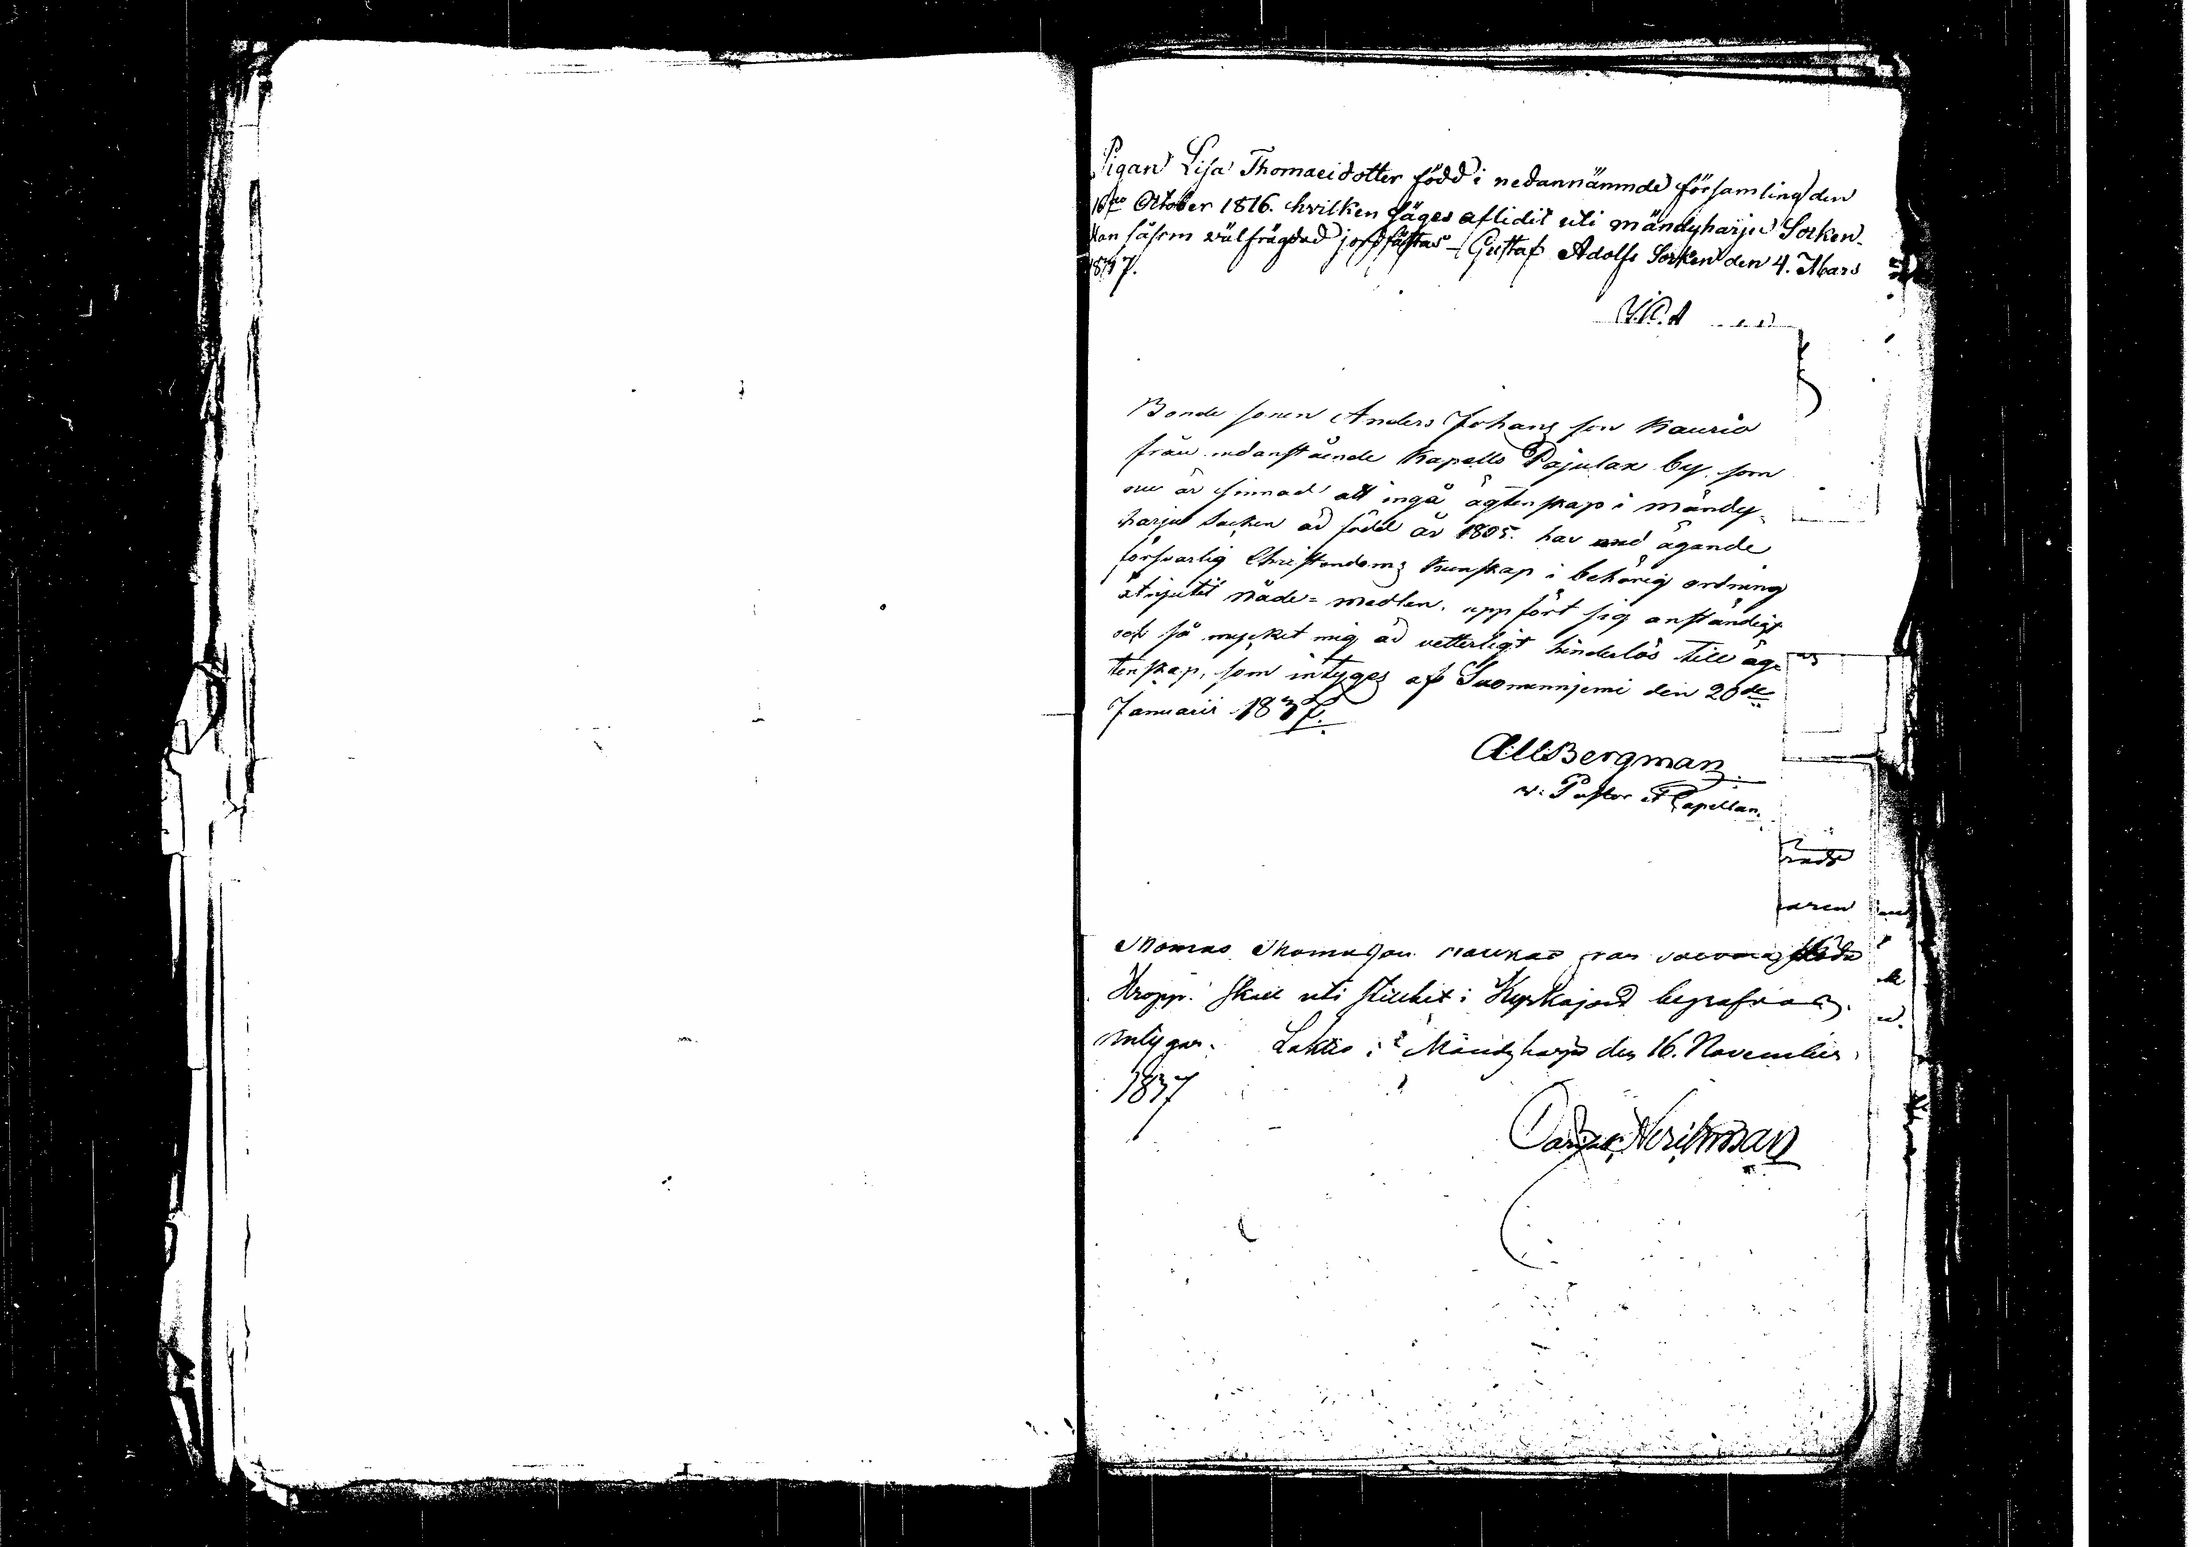 Pigan Lisa Thomaeidotter född i nedannämnde församling den
16de October 1816. hvilken säges aflidit uti mändyharju Socken
kan såsom välfrägdad jordfästas — Gustaf Adolfs Socken den 4. Mars
1837.
Bonde sonen Anders Johans son Kauria
från nedanstående Kapells Pajulax by som
nu är sinnad att ingå ägtenskap i mändy-
harju Socken är född år 1805. har med ägande
försvarlig Christendoms kunskap i behörig ordning
åtnjutit Nåde-medlen, uppfört sig anständigt
och så mycket mig är vetterligt hinderlös till äg-
tenskap, som intyges af Suomenniemi den 20de
Januarii 1837.
Bergman
v. Pastor et Capellan.
Thomas Thomasson från döda
Kropp skall uti stillhet i Kyrkojord begrafvas.
intygar. Lakis i Mändyharju den 16. November
1837